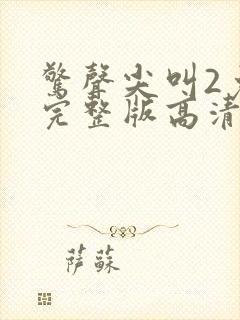 驚聲尖叫2
完整版高清
萨蘇